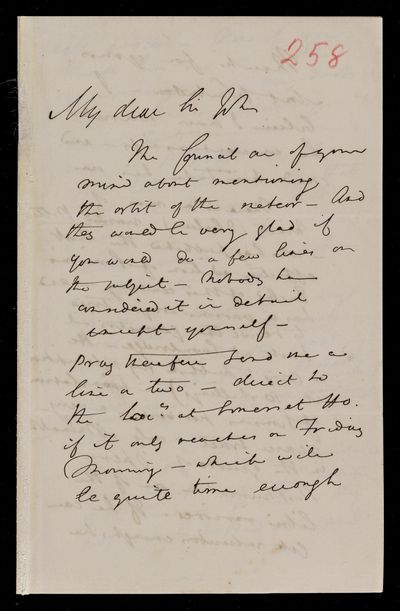 258
My dear Sir John
The Council are of your
mind about mentioning
the orbit of the meteor – And
they would be very glad if
you would do a few lines on
the subject – Nobody has
considered it in detail
except yourself –
Pray therefore send me a
line or two – direct to
the Socy at Somerset Ho.
if it only reaches on Friday
Morning – which will
be quite time enough